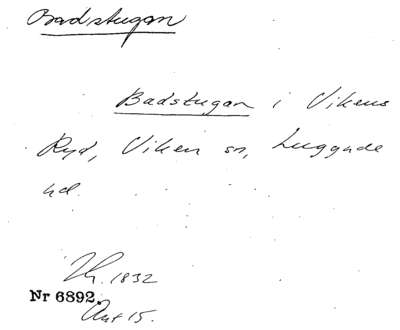 Badstugan
Badstugan i Vikens
Ryd, Viken sn, Luggude
hd.
1832
Nr 6892.
Ant 15.